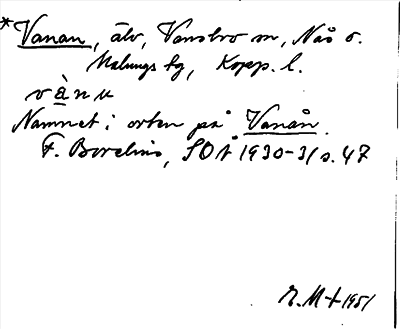 *Vanan, älv, Vansbro m, Nås o.
Malungs tg, Kopp. l.
vànu
Namnet i orten på Vanån.
F. Borelius, SOÅ 1930-31 s. 47
1951